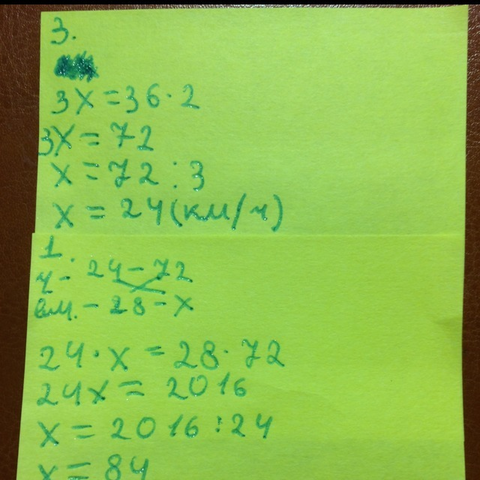 3.
3x = 36 · 2
3x = 72
x = 72 : 3
x = 24 (км/ч)
1.
ч - 24 - 72
- 28 - x
24 · x = 28 · 72
24x = 2016
x = 2016 : 24
x = 84